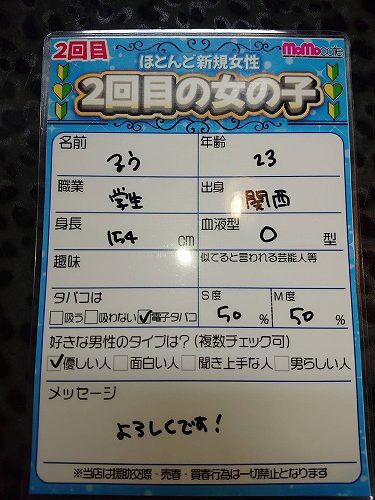 2回目
MoMocafe
ほとんど新規女性
2回目の女の子
名前 るう 年齢 23
職業 学生 出身 関西
身長 154 cm 血液型 O 型
趣味 似てると言われる芸能人等
タバコは S度 M度
□吸う □吸わない ☑電子タバコ 50 % 50 %
好きな男性のタイプは?(複数チェック可)
☑優しい人 □面白い人 □聞き上手な人 □男らしい人
メッセージ
よろしくです!
※当店は援助交際・売春・買春行為は一切禁止となります